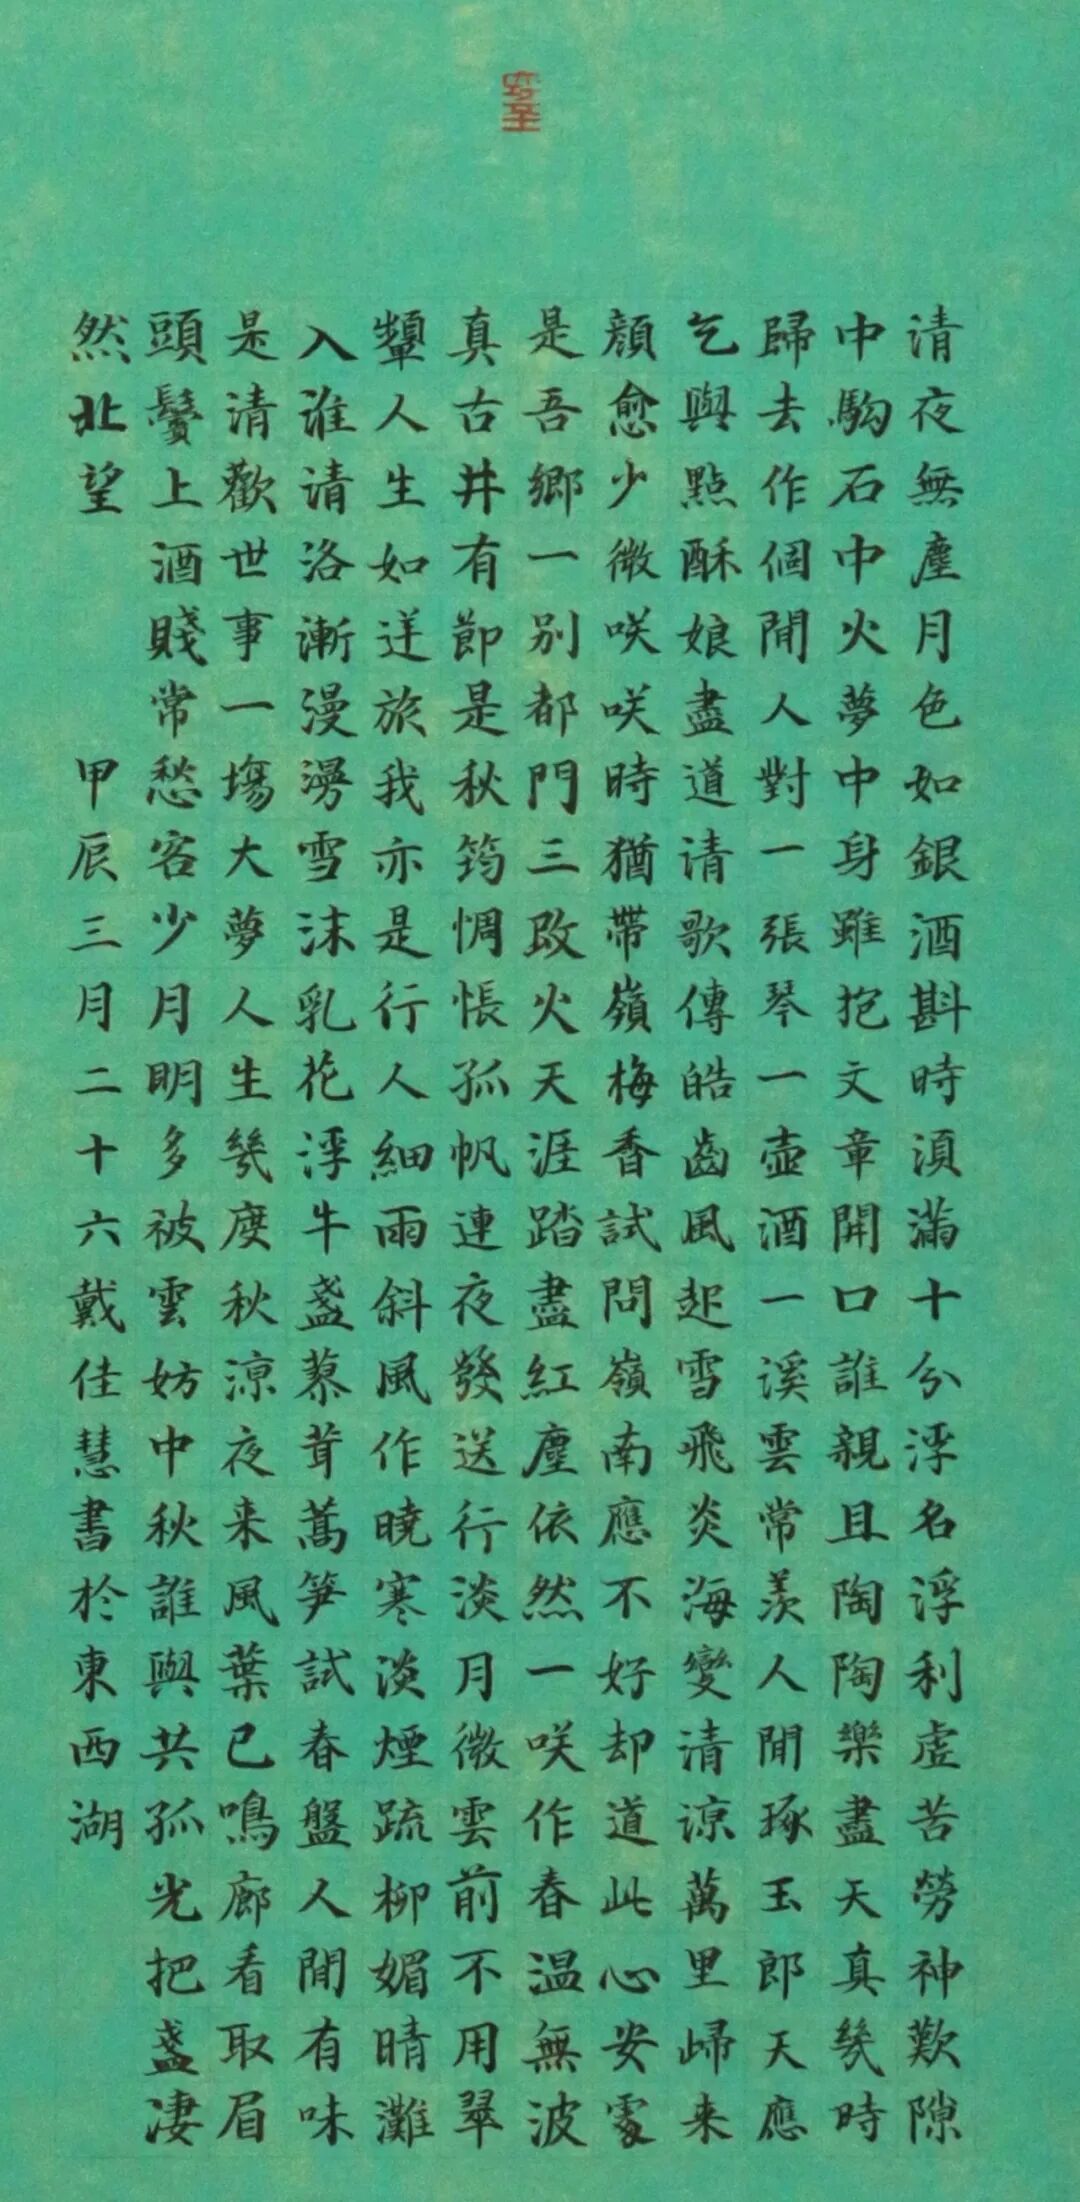 清夜無塵月色如銀酒斟時須滿十分浮名浮利虛苦勞神歎隙
中駒石中火夢中身雖抱文章開口誰親且陶陶樂盡天真幾時
歸去作個閒人對一張琴一壺酒一溪雲常羨人閒琢玉郎天應
乞與點酥娘盡道清歌傳皓齒風起雪飛炎海變清涼萬里歸来
顏愈少微咲咲時猶帶嶺梅香試問嶺南應不好却道此心安處
是吾鄉一別都門三改火天涯踏盡紅塵依然一咲作春温無波
真古井有節是秋筠惆悵孤帆連夜發送行淡月微雲前不用翠
顰人生如逆旅我亦是行人細雨斜風作曉寒淡煙疏柳媚晴灘
入淮清洛漸漫漫雪沫乳花浮午盞蓼茸蒿筍試春盤人閒有味
是清歡世事一場大夢人生幾度秋涼夜来風葉已鳴廊看取眉
頭鬢上酒賤常愁客少月明多被雲妨中秋誰與共孤光把盞凄
然北望 甲辰三月二十六戴佳慧書於東西湖